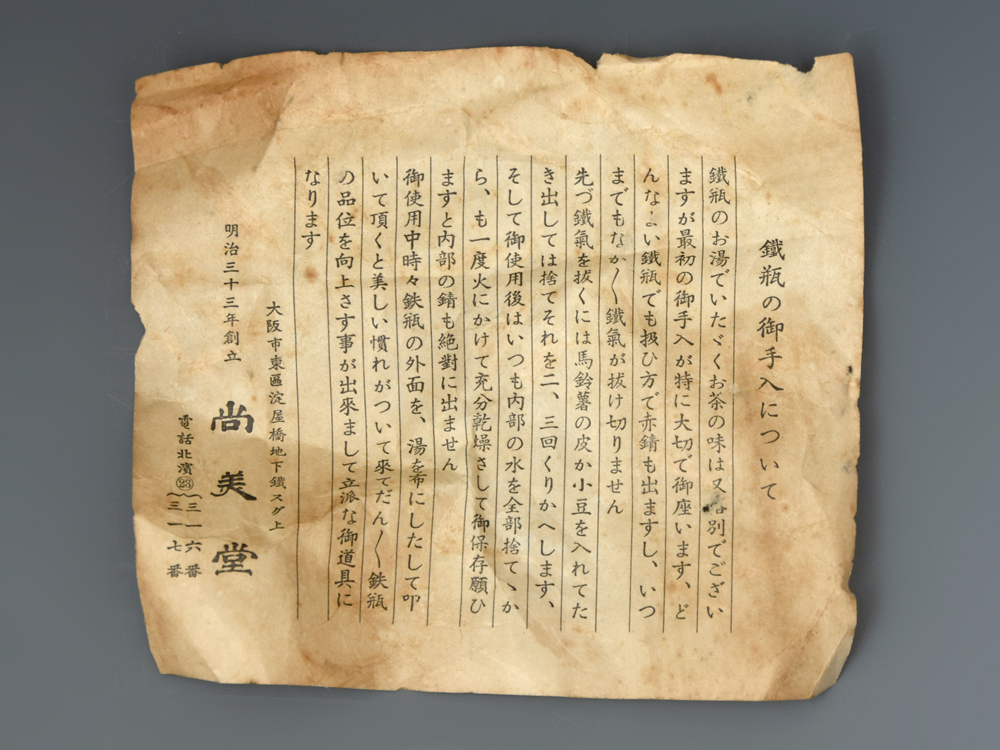 鐵瓶の御手入について
鐵瓶のお湯でいたゞくお茶の味は又格別でござい
ますが最初の御手入が特に大切で御座います、ど
んなよい鐵瓶でも扱ひ方で赤錆も出ますし、いつ
までもなか〱鐵氣が拔け切りません
先づ鐵氣を拔くには馬鈴薯の皮か小豆を入れてた
き出しては捨てそれを二、三回くりかへします、
そして御使用後はいつも内部の水を全部捨てゝか
ら、も一度火にかけて充分乾燥さして御保存願ひ
ますと内部の錆も絕對に出ません
御使用中時々鉄瓶の外面を、湯を布にしたして叩
いて頂くと美しい慣れがついて來てだん〱鉄瓶
の品位を向上さす事が出來まして立派な御道具に
なります
大阪市東區淀屋橋地下鐵スグ上
明治三十三年創立 尚美堂
電話北濱㉓ 三一六番
三一七番